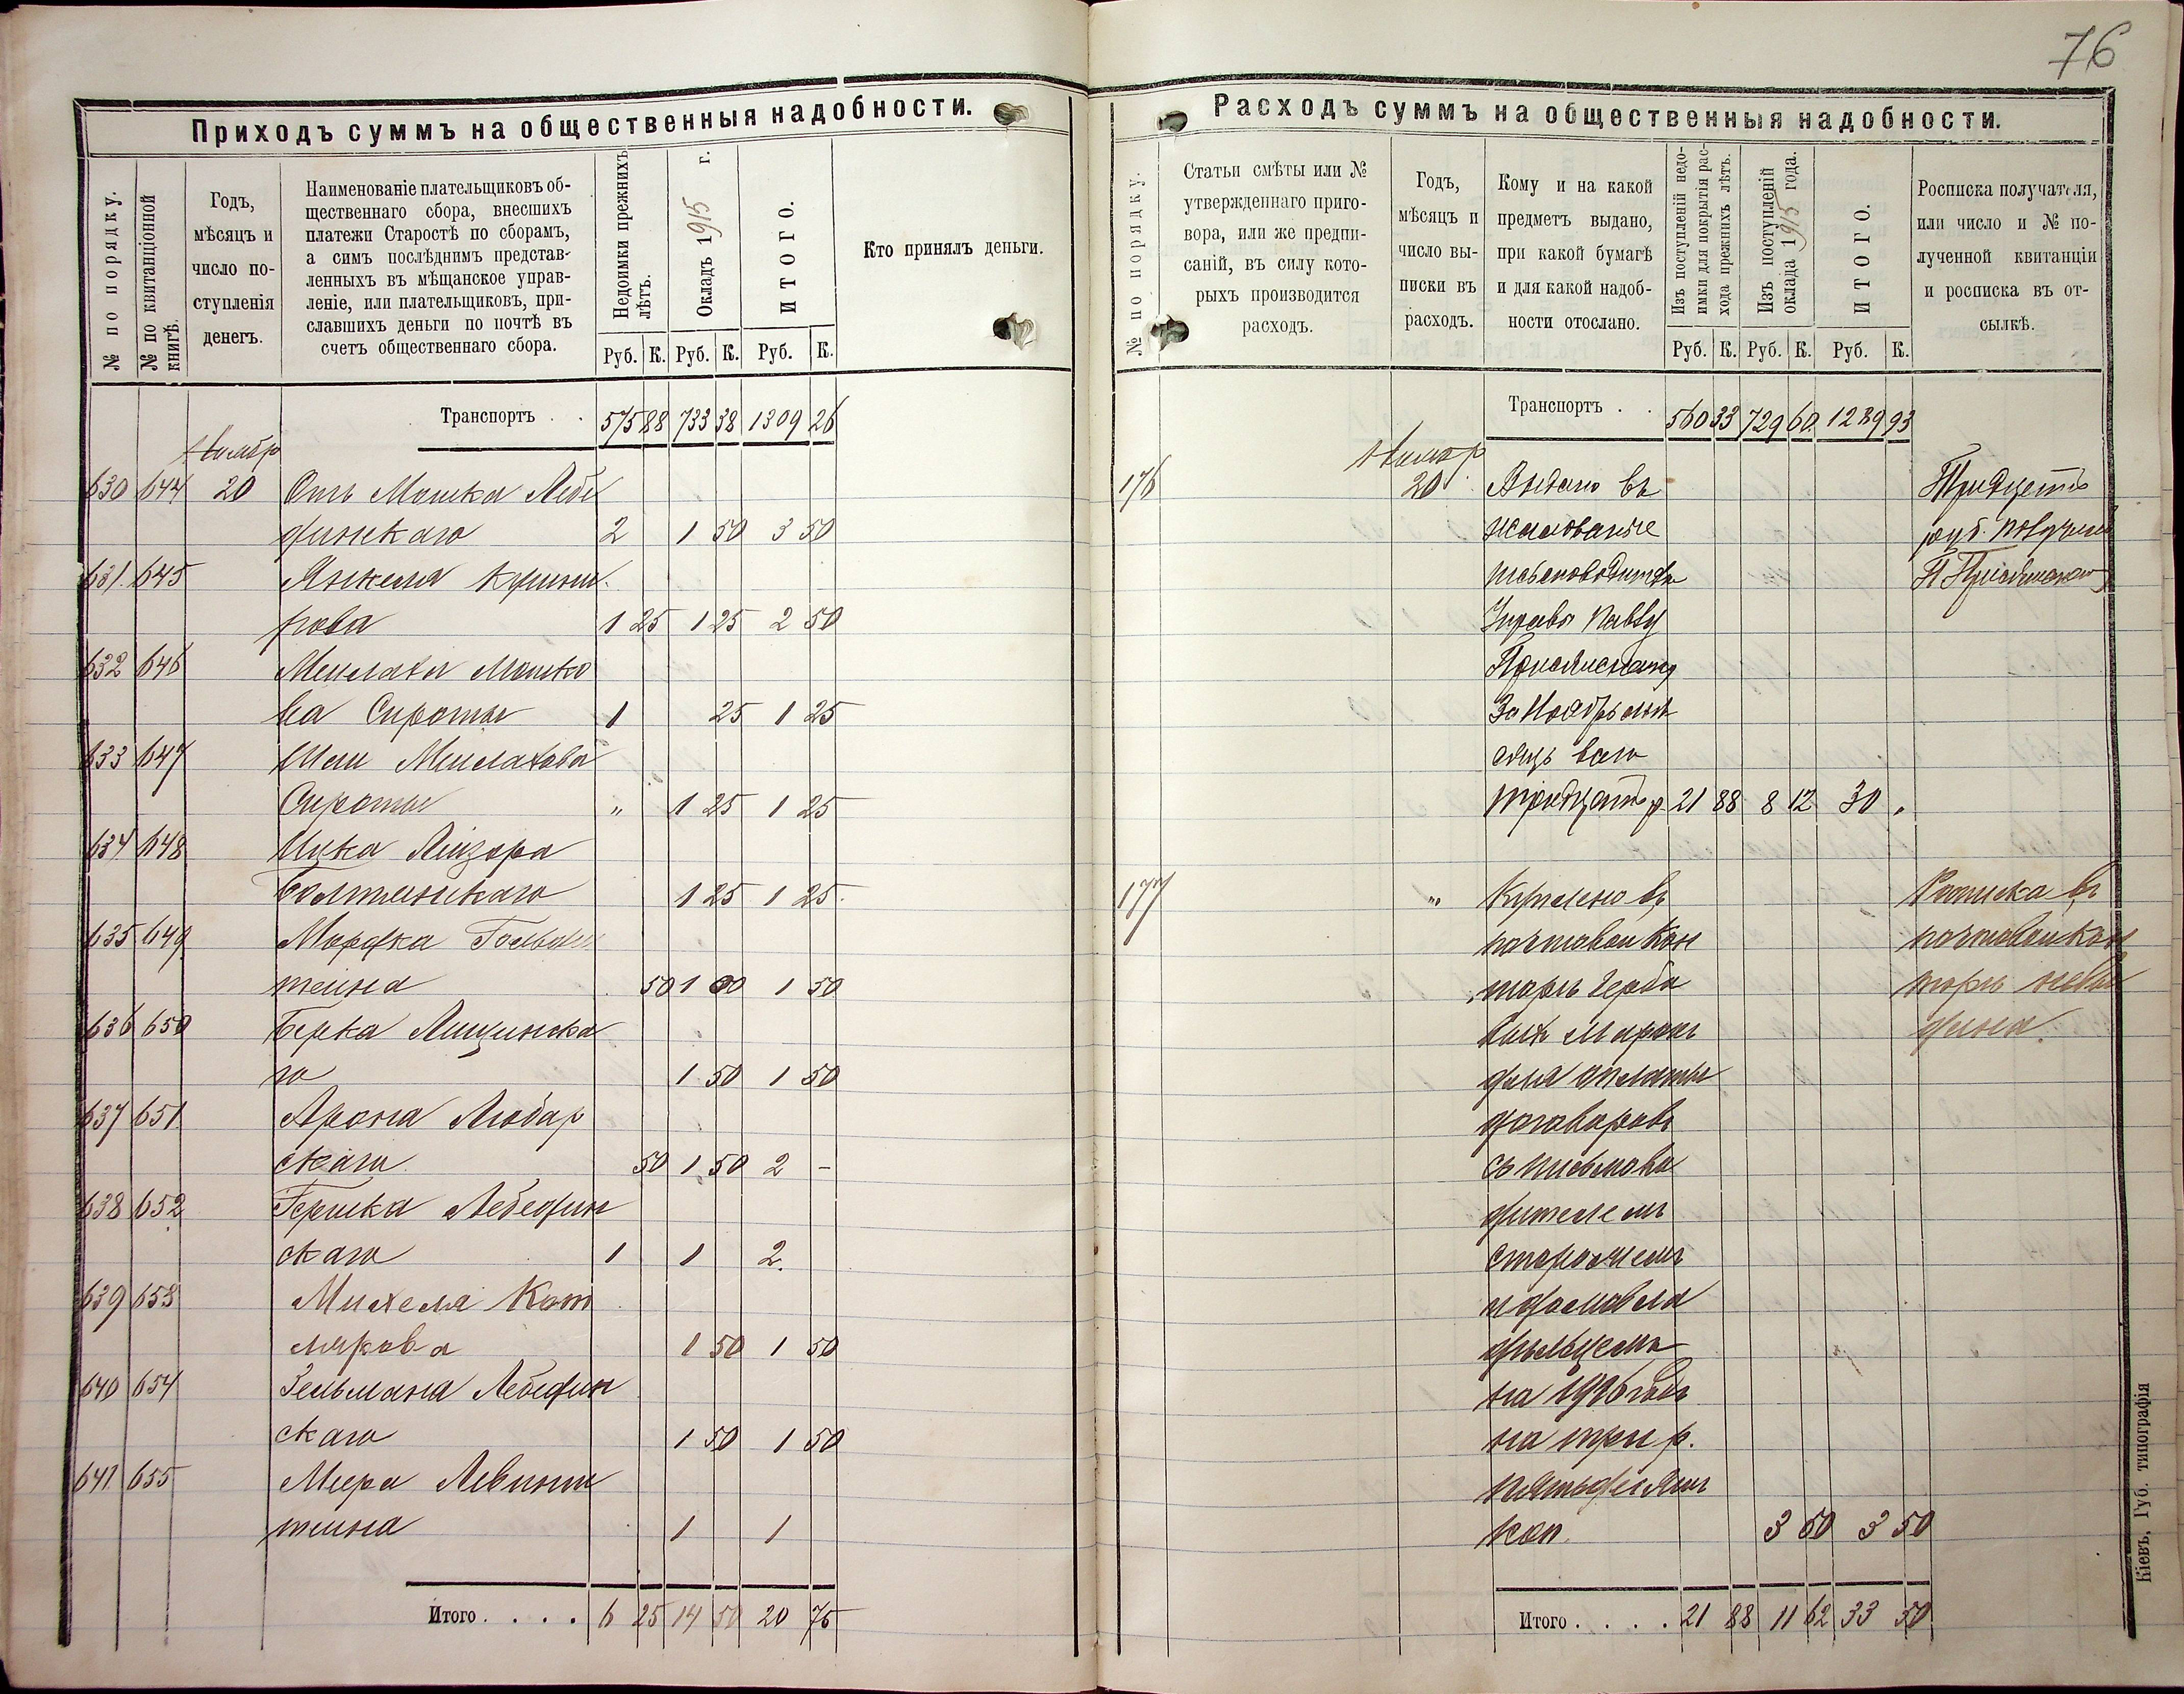 76
Приходъ суммъ на общественныя надобности.
№ по порядку.
№ по квитанціонной книгѣ.
Годъ,
мѣсяцъ и
число по-
ступленія
денегъ.
Наименованіе плательщиковъ об-
щественнаго сбора, внесшихъ
платежи Старостѣ по сборамъ,
а симъ послѣднимъ представ-
ленныхъ въ мѣщанское управ-
леніе, или плательщиковъ, при-
славшихъ деньги по почтѣ въ
счетъ общественнаго сбора.
Недоимки прежнихъ
лѣтъ.
Окладъ 1915 г.
ИТОГО.
Кто принялъ деньги.
Руб. К. Руб. К. Руб. К.
Транспортъ . . 575 88 733 38 1309 26
630 644 20 Отъ Мошка Лебе
динскаго 2 1 50 3 50
631 645 Янкеля Кушни
рова 1 25 1 25 2 50
632 646 Менлаха Мошко
ва Сироты 1 25 1 25
633 647 Шаи Менлахова
Сироты „ 1 25 1 25
634 648 Ицка Лейзора
Болтянскаго 1 25 1 25
635 649 Мордка Гольдш
тейна 50 1 00 1 50
636 650 Берка Лищинска
го 1 50 1 50
637 651 Арона Любар
скаго 50 1 50 2 –
638 652 Гершка Лебедин
скаго 1 1 2
639 653 Михеля Кот
лярова 1 50 1 50
640 654 Зельмана Лебедин
скаго 1 50 1 50
641 655 Меера Левинш
тейна 1 1
Итого . . . . 6 25 14 50 20 75
Расходъ суммъ на общественныя надобности.
№ по порядку.
Статьи смѣты или №
утвержденнаго приго-
вора, или же предпи-
саній, въ силу кото-
рыхъ производится
расходъ.
Годъ,
мѣсяцъ и
число вы-
писки въ
расходъ.
Кому и на какой
предметъ выдано,
при какой бумагѣ
и для какой надоб-
ности отослано.
Изъ поступленій недо-
имки для покрытія рас-
хода прежнихъ лѣтъ.
Изъ поступленій
оклада 1915 года.
ИТОГО.
Росписка получателя,
или число и № по-
лученной квитанціи
и росписка въ от-
сылкѣ.
Руб. К. Руб. К. Руб. К.
Транспортъ . . 560 33 729 60 1289 93
176 20 Выдано въ Тридцать
жалованье руб. получилъ
письмоводителю
Управы Павлу
За Ноябрь мѣ
сяцъ всего
тридцать р. 21 88 8 12 30 „
177 „ Куплено въ Росписка въ
почтовой кон почтовой кон
торѣ гербо торѣ
выхъ марокъ
для оплаты
договоровъ
съ письмово
дителемъ
сторожемъ
и домовла
дѣльцемъ
на 1916 годъ
на три р.
пятьдесятъ
коп. 3 50 3 50
Итого . . . . 21 88 11 62 33 50
Кіевъ, Губ. типографія